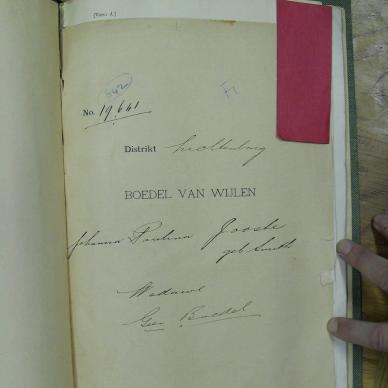 [Form A.]
842
F1
No. 19,641
Distrikt Lichtenburg
BOEDEL VAN WIJLEN
Johanna Paulina Jooste
geb Smith
Weduwe
Geen Boedel